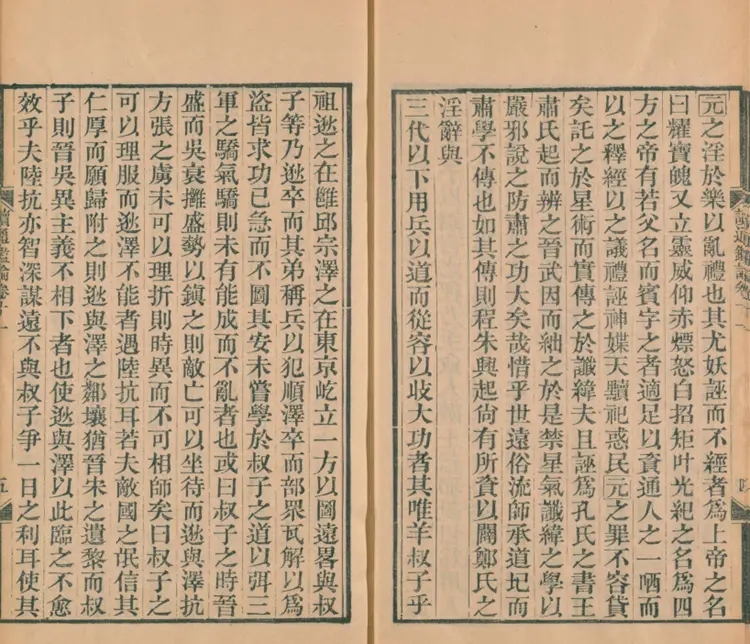 元之淫於樂以亂禮也其尤妖誣而不經者爲上帝之名
曰耀寶魄又立靈威仰赤熛怒白招矩叶光紀之名爲四
方之帝有若父名而賓字之者適足以資通人之一哂而
以之釋經以之議禮誣神媟天黷祀惑民元之罪不容貸
矣託之於星術而實傳之於讖緯夫且誣爲孔氏之書王
肅氏起而辨之晉武因而絀之於是禁星氣讖緯之學以
嚴邪說之防肅之功大矣哉惜乎世遠俗流師承道圮而
肅學不傳也如其傳則程朱興起尙有所資以闢鄭氏之
淫辭與
三代以下用兵以道而從容以歧大功者其唯羊叔子乎
讀通鑑論卷十一
祖逖之在雝邱宗澤之在東京屹立一方以圖遠畧與叔
子等乃逖卒而其弟稱兵以犯順澤卒而部眾瓦解以爲
盜皆求功已急而不圖其安未嘗學於叔子之道以弭三
軍之驕氣驕則未有能成而不亂者也或曰叔子之時晉
盛而吳衰攡盛勢以鎭之則敵亡可以坐待而逖與澤抗
方張之虜未可以理折則時異而不可相師矣曰叔子之
可以理服而逖澤不能者遇陸抗耳若夫敵國之氓信其
仁厚而願歸附之則逖與澤之鄰壤猶晉宋之遺黎而叔
子則晉吳異主義不相下者也使逖與澤以此臨之不愈
效乎夫陸抗亦智深謀遠不與叔子爭一日之利耳使其
讀通鑑論卷十一
五